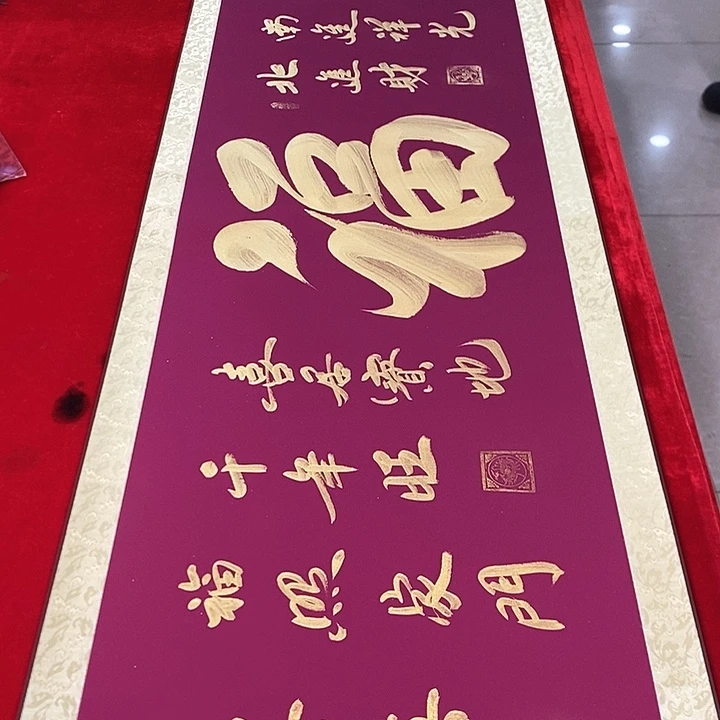 南進祥光
北進財
福
喜居寶地
千年旺
福照家門